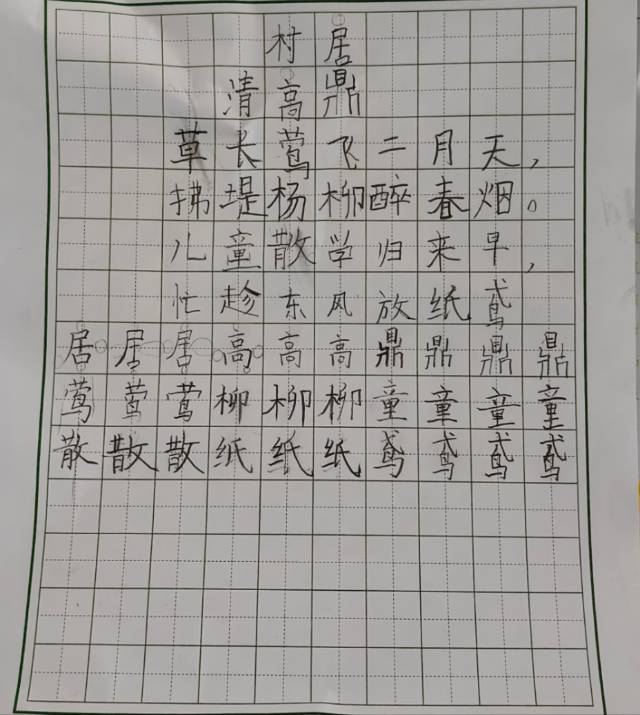 村居
清 高鼎
草长莺飞二月天，
拂堤杨柳醉春烟。
儿童散学归来早，
忙趁东风放纸鸢
居居居高高高鼎鼎鼎鼎
莺莺莺柳柳柳童童童童
散散散纸纸纸鸢鸢鸢鸢